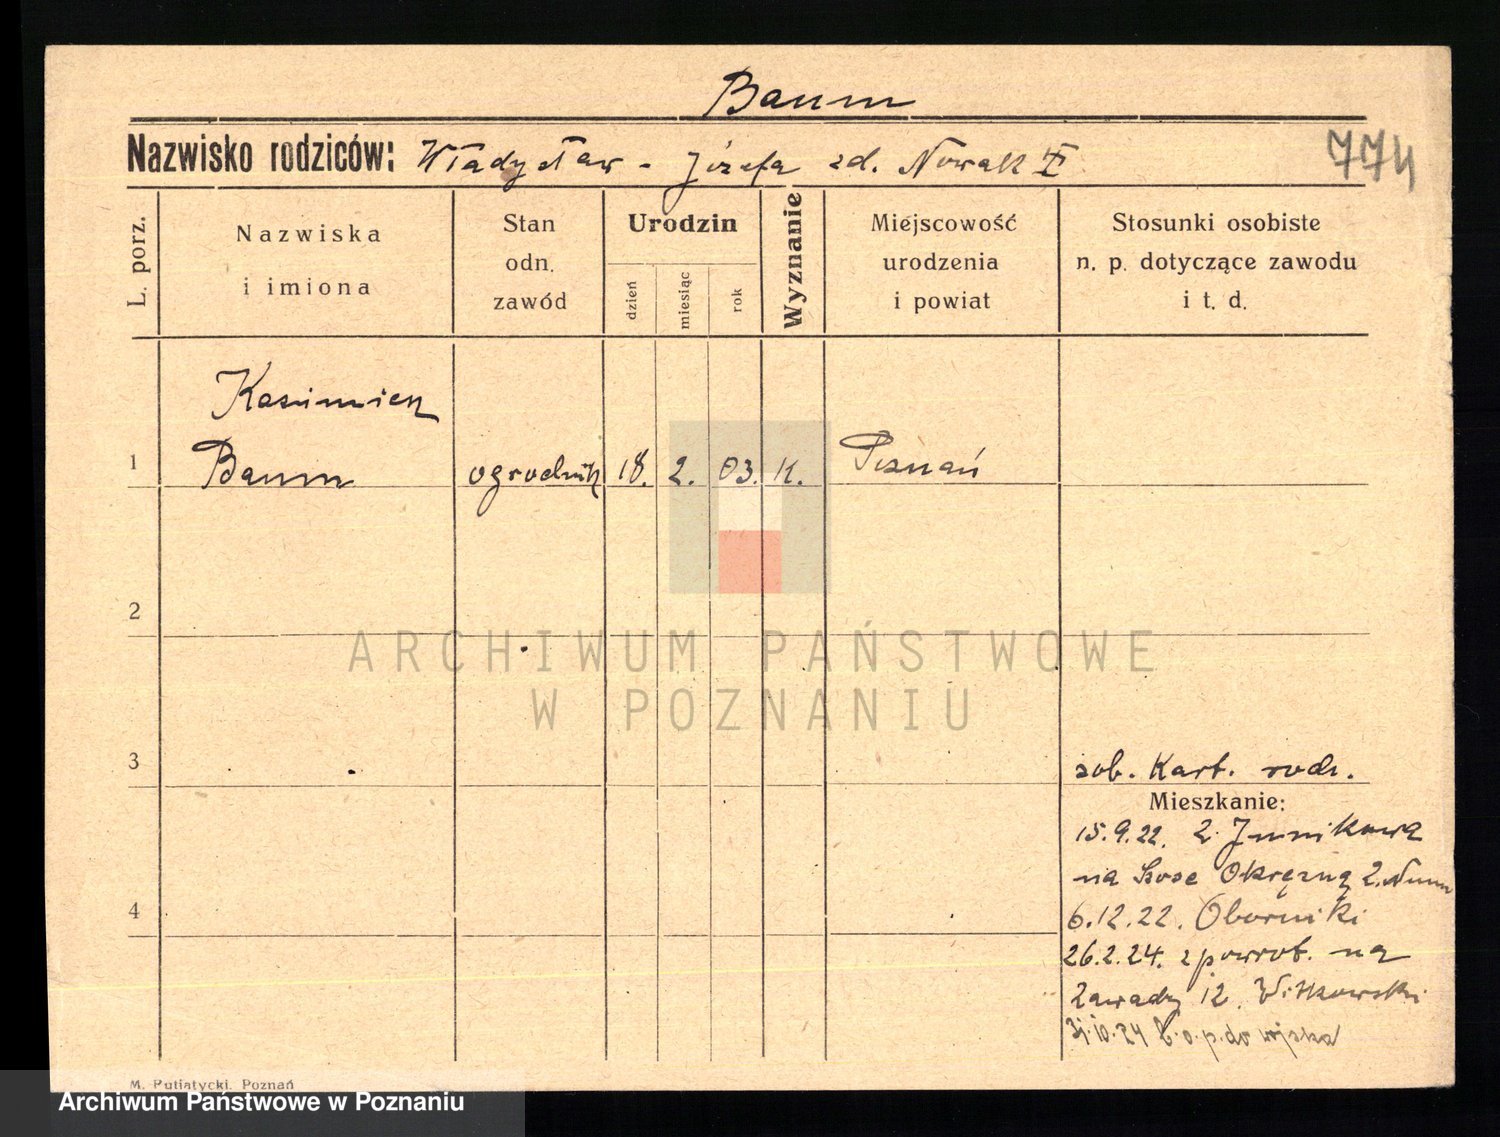 Baum
Nazwisko rodziców: Władysław - Józefa zd. Nowak VI
774
L. porz.
Nazwiska
i imiona
Stan
odn.
zawód
Urodzin
dzień
miesiąc
rok
Wyznanie
Miejscowość
urodzenia
i powiat
Stosunki osobiste
n. p. dotyczące zawodu
i t. d.
Kazimierz
1 Baum ogrodnik 18. 2. 03. K. Poznań
2
ARCHIWUM PAŃSTWOWE
W POZNANIU
3
zob. Kart. rodz.
Mieszkanie:
15.9.22. z Junikowa
na Szose Okrężną 2.
4
6.12.22. Oborniki
26.2.24. z powrot. na
Zawady 12. Witkowski
31.10.24 do wojska
M. Putiatycki. Poznań
Archiwum Państwowe w Poznaniu